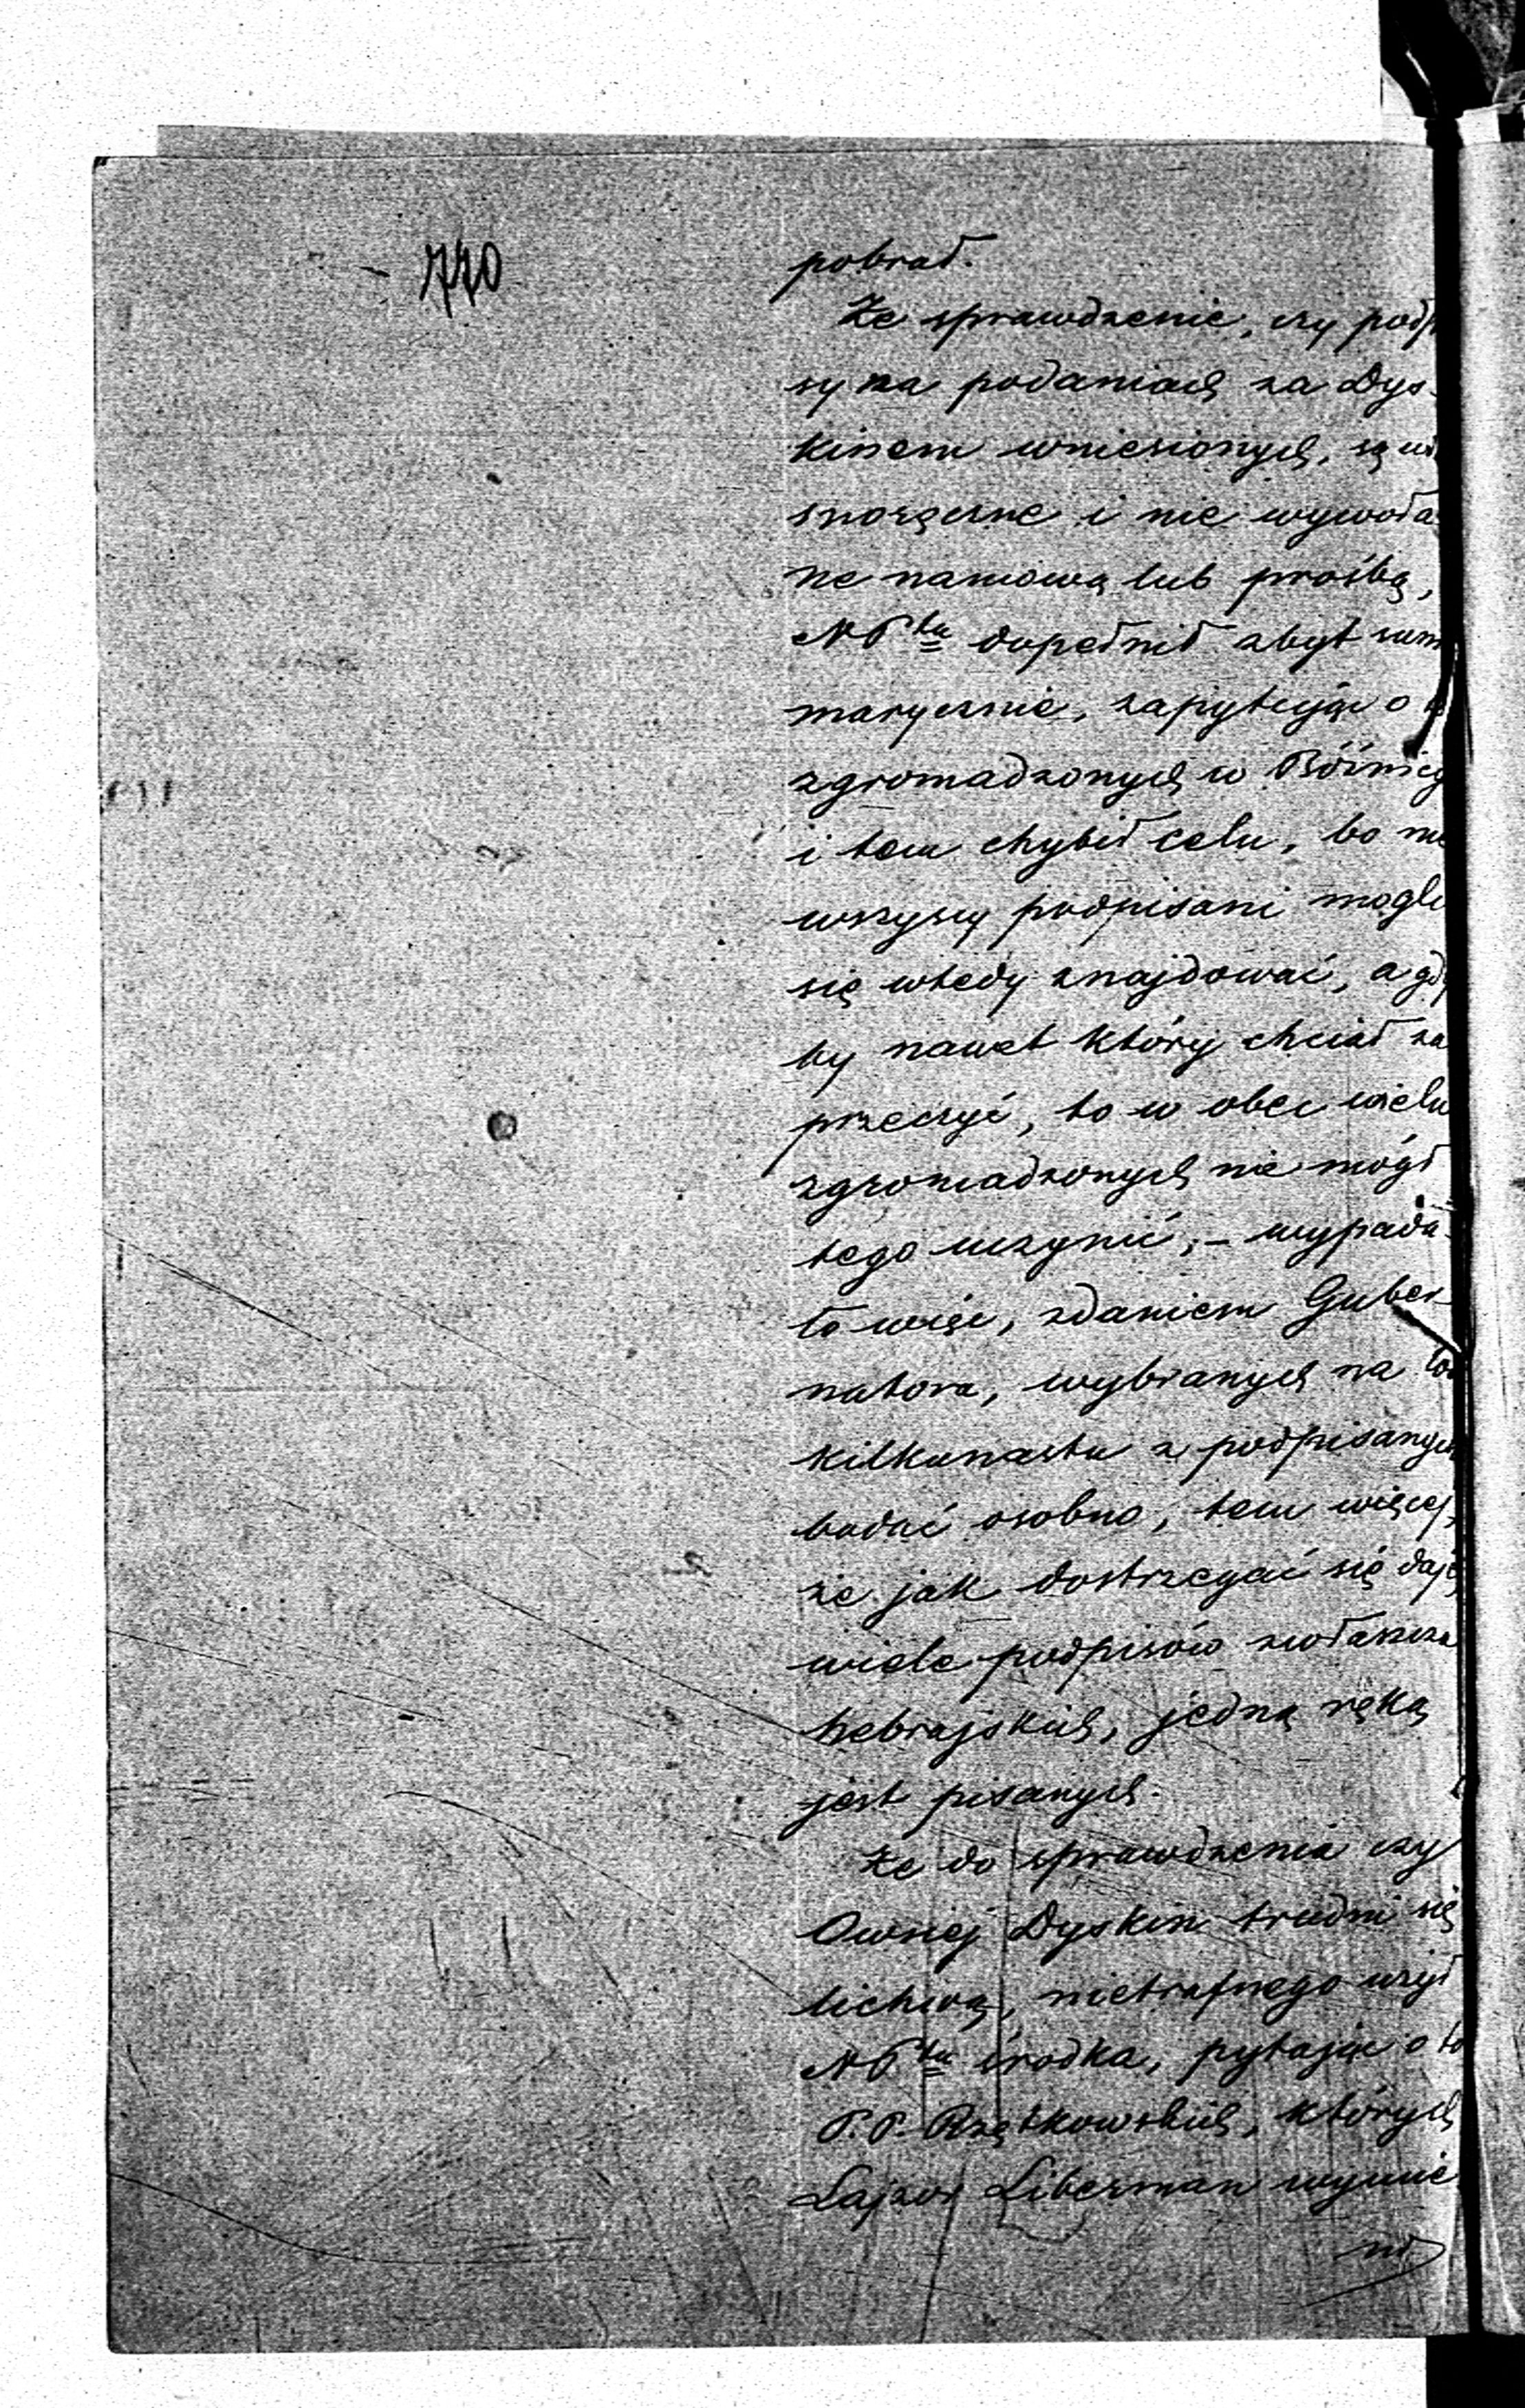 770
pobrał.
Że sprawdzenie, czy podp
sy na podaniach za Dys-
kinem wniesionych, są
snoręczne i nie wywoła
ne namową lub prośbą,
NP<sup>ta</sup> dopełnił zbyt sum
marycznie, zapytując o
zgromadzonych w Bóźnicy
i tem chybił celu, bo nie
wszyscy podpisani mogli
się wtedy znajdować, a gdy
by nawet który chciał za
przeczyć, to w obec wielu
zgromadzonych nie mógł
tego uczynić; – wypada-
ło więc, zdaniem Guber-
natora, wybranych na los
kilkunastu z podpisanych
badać osobno, tem więcej,
że jak dostrzegać się daje,
wiele podpisów zwłaszcza
hebrajskich, jedną ręką
jest pisanych.
Że do sprawdzenia czy
Owsiej Dyskin trudni się
lichwą, nietrafnego użył
NP<sup>ta</sup> środka, pytając o to
P.P. Rzętkowskich, których
Lajzor Liberman wymie
nił